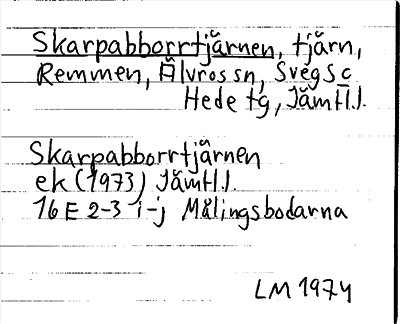 Skarpabborrtjärnen, tjärn,
Remmen, Älvros sn, Svegs c
Hede tg, Jämtl.l.
Skarpabborrtjärnen
ek (1973) Jämtl.l.
16 E 2-3 i-j Målingsbodarna
LM 1974